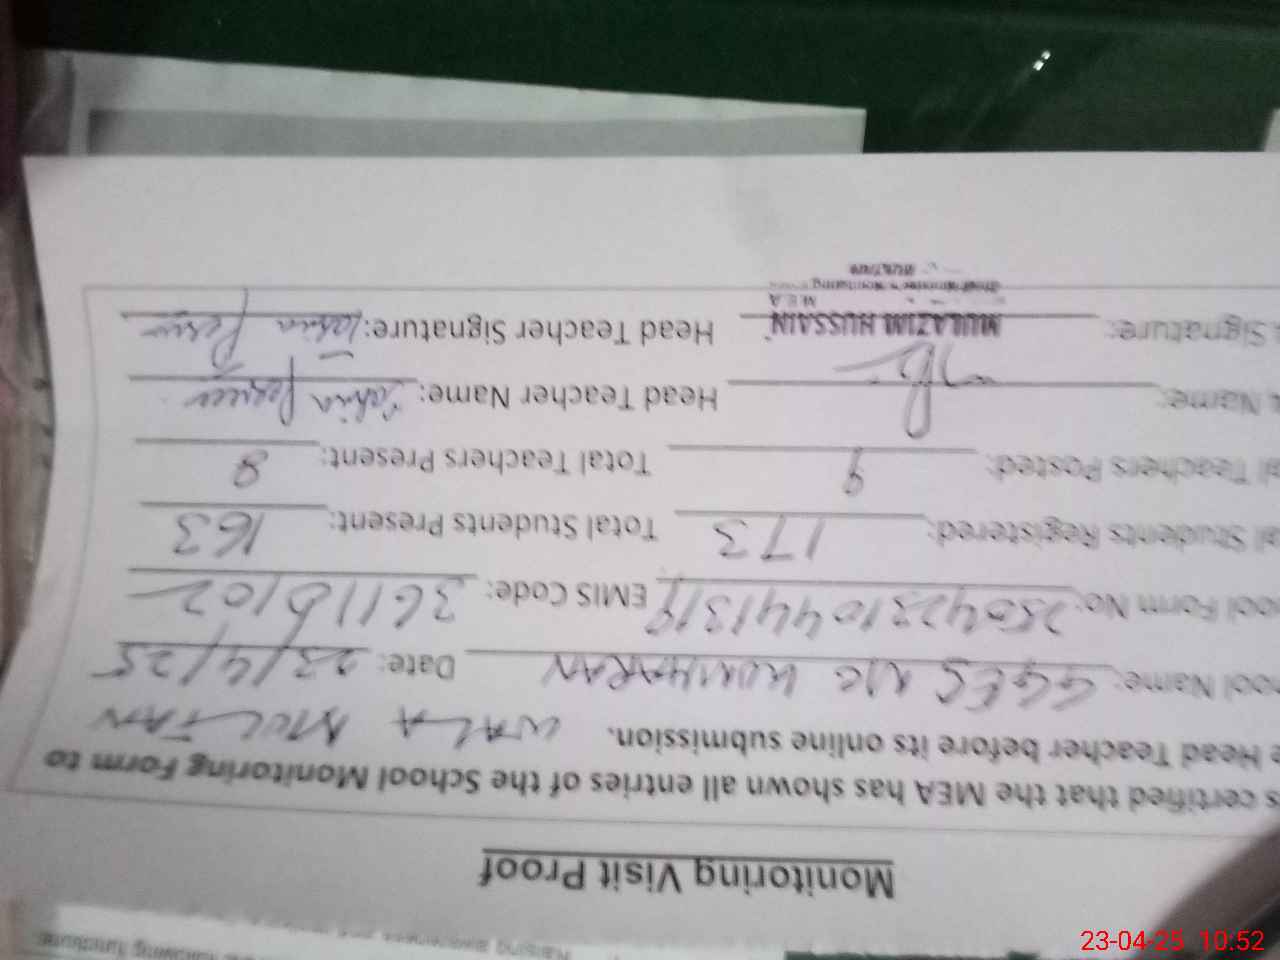 Monitoring Visit Proof
s certified that the MEA has shown all entries of the School Monitoring Form to
e Head Teacher before its online submission. WALA MULTAN
ool Name: GGES N/C KUMHARAN Date: 23/4/25
ool Form No: EMIS Code:
al Students Registered: 173 Total Students Present: 163
al Teachers Posted: 9 Total Teachers Present: 8
Name: Head Teacher Name:
Signature: MULAZIM HUSSAIN Head Teacher Signature:
M.E.A
Chief Minister's Monitoring
MULTAN
23-04-25 10:52